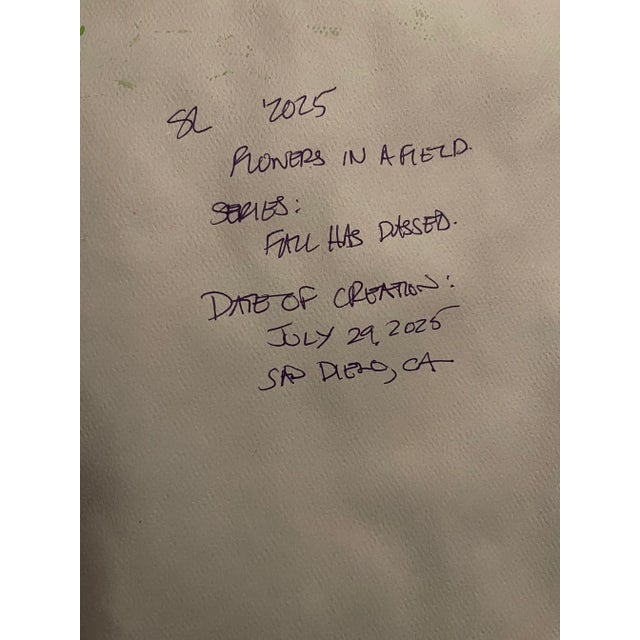 SL '2025
FLOWERS IN A FIELD.
SERIES:
FALL HAS PASSED.
DATE OF CREATION:
JULY 29, 2025
SAN DIEGO, CA